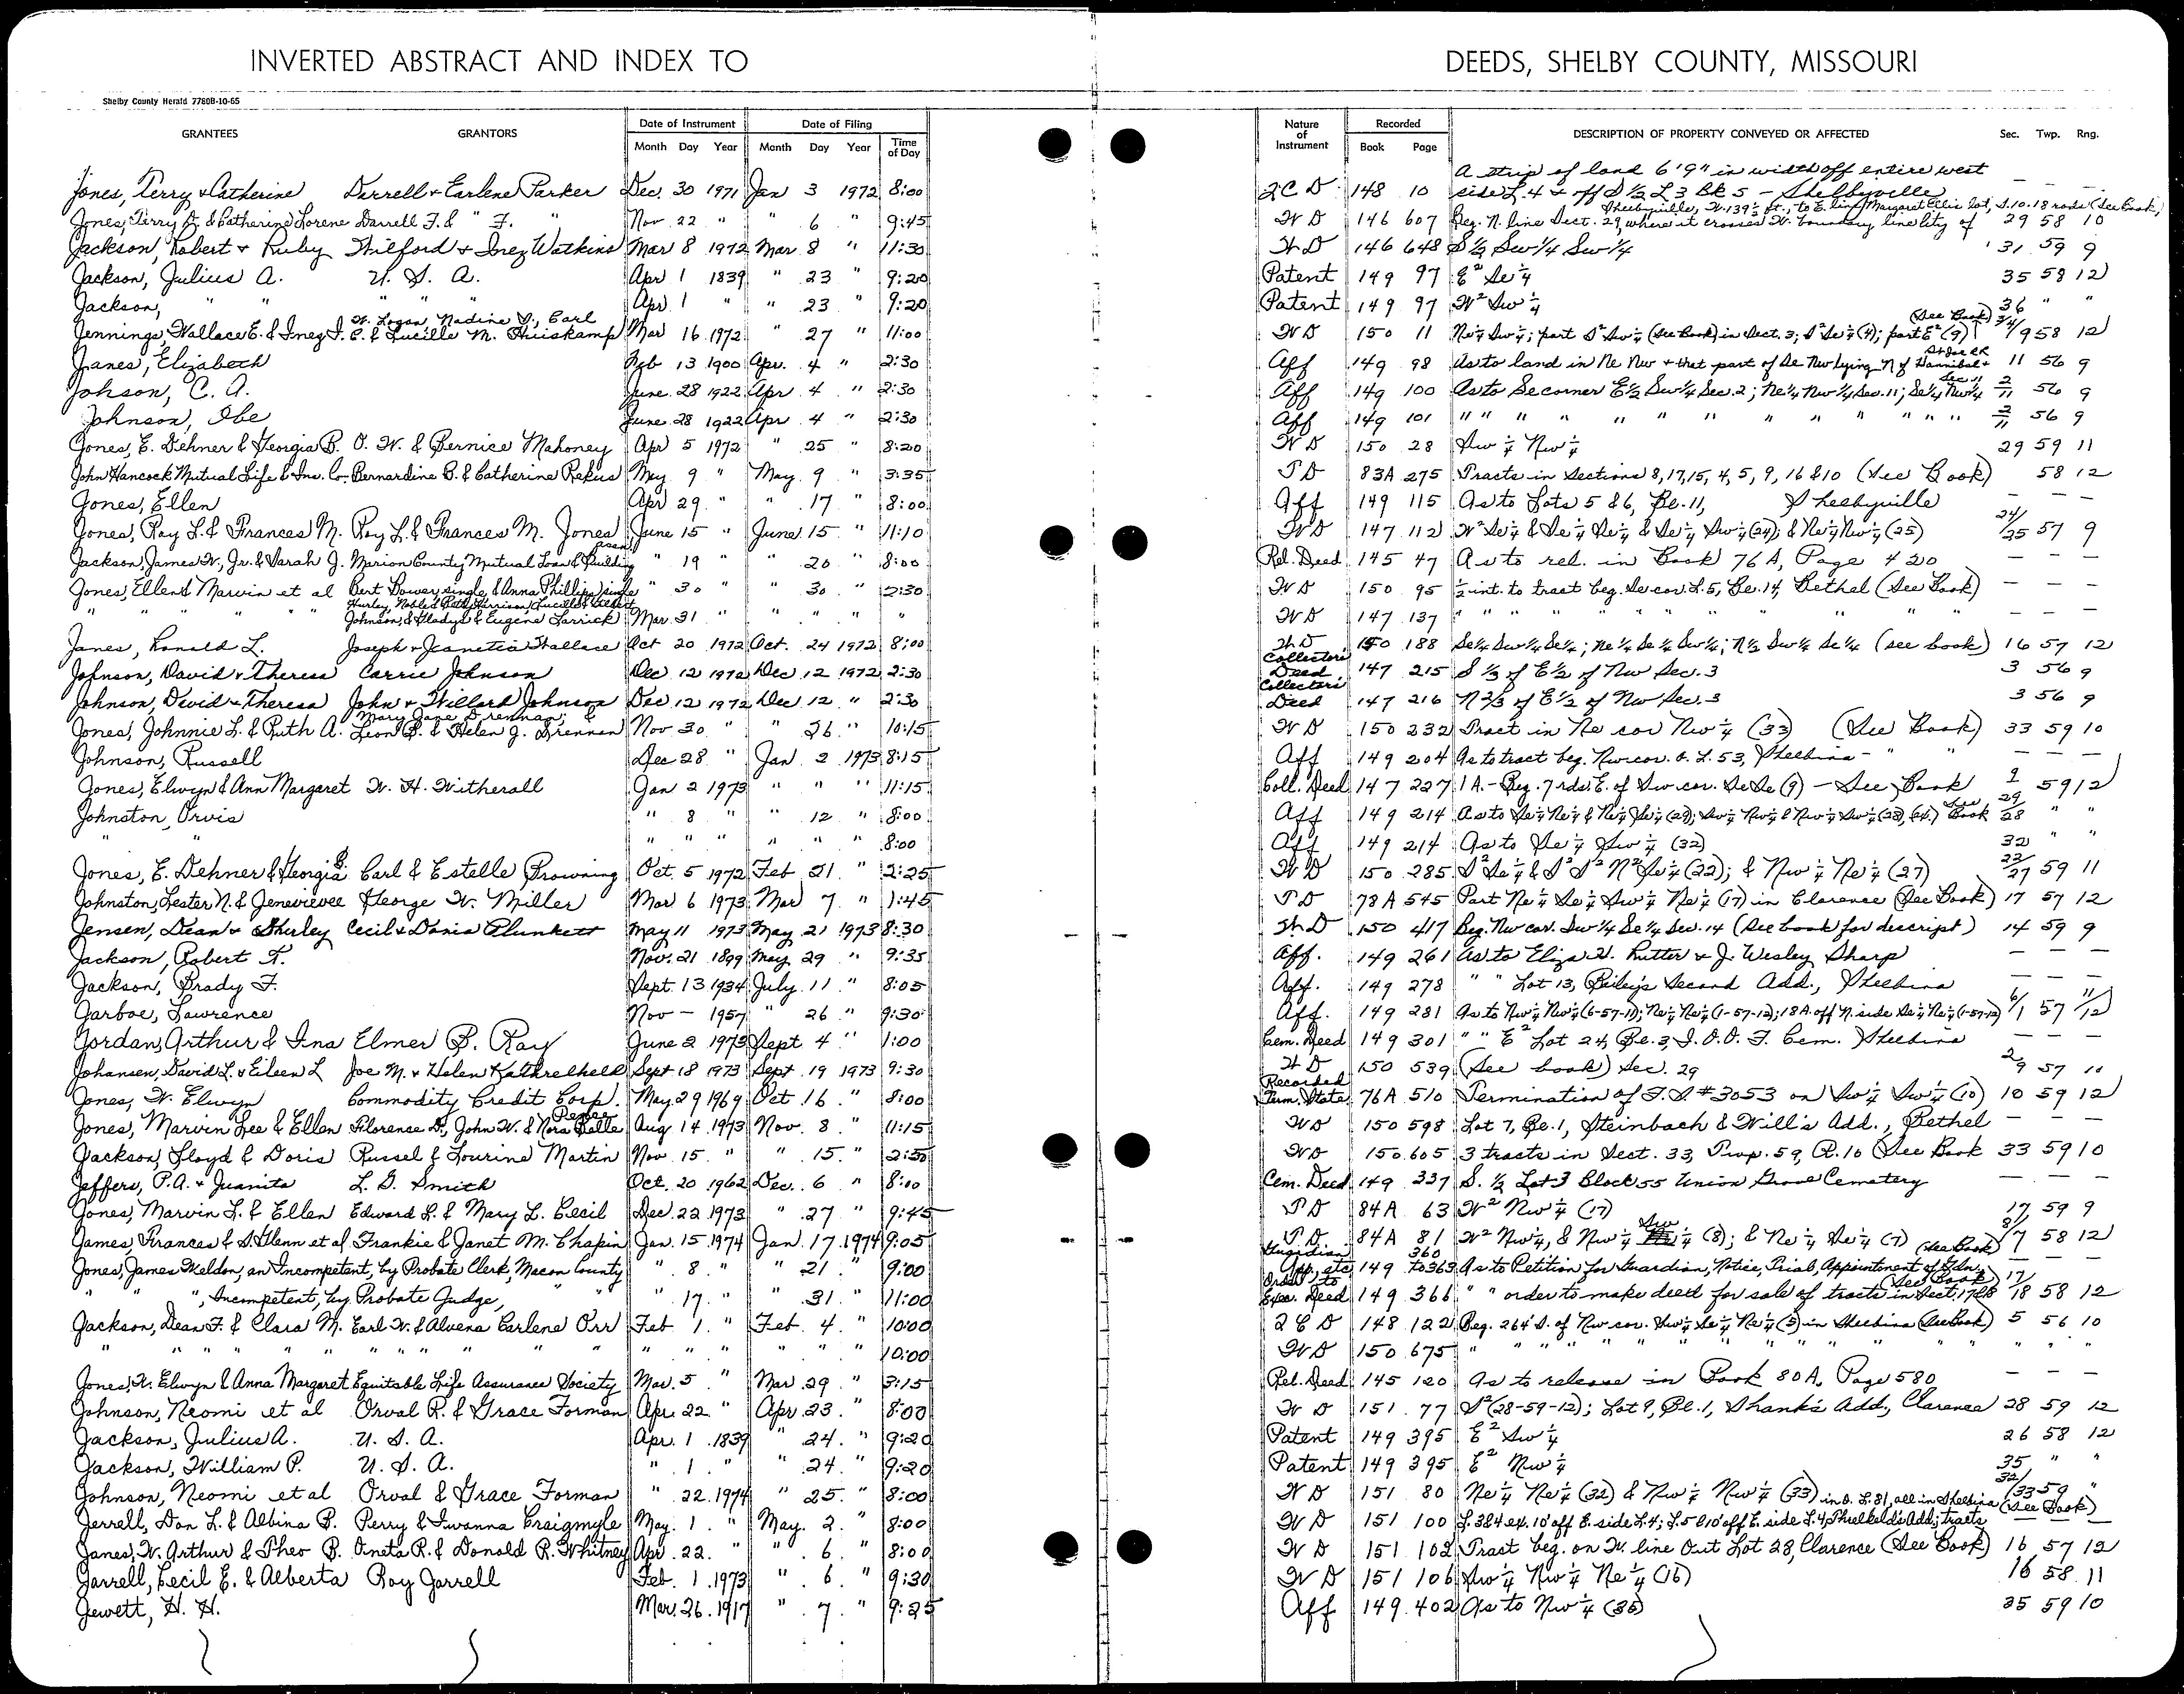 INVERTED ABSTRACT AND INDEX TO DEEDS, SHELBY COUNTY, MISSOURI
Shelby County Herald 7780B-10-65
GRANTEES GRANTORS Date of Instrument Month Day Year Date of Filing Month Day Year Time of Day Nature of Instrument Recorded Book Page DESCRIPTION OF PROPERTY CONVEYED OR AFFECTED Sec. Twp. Rng.
A strip of land 6'9" in width off entire west
Jones, Terry & Catherine Darrell & Earlene Parker Dec. 30 1971 Jan 3 1972 8:00 Q C D 148 10 side L. 4 & off S 1/2 L 3 Bk 5 - Shelbyville — — —
Shelbyville, W. 139 1/2 ft., to E. line Margaret lot, S. 10.18 rods (See Book)
Jones, Terry & Catherine Lorene Darrell F. & " F. " Nov 22 " " 6 " 9:45 W D 146 607 Beg. N. line Sect. 29, where it crosses W. boundary line City of 29 58 10
Jackson, Robert & Ruby Wilford & Inez Watkins Mar 8 1972 Mar 8 " 11:30 W D 146 648 S 1/2 Sw 1/4 Sw 1/4 31 59 9
Jackson, Julius A. U. S. A. Apr 1 1839 " 23 " 9:20 Patent 149 97 E² Se 1/4 35 58 12
Jackson, " " " " " Apr 1 " " 23 " 9:20 Patent 149 97 W² Sw 1/4 36 " "
W. Logan, Nadine V., Carl (See Book) 3/4/
Jennings, Wallace E. & Inez I. E. & Lucille M. Thiiskamp Mar 16 1972 " 27 " 11:00 W D 150 11 Ne 1/4 Sw 1/4; part S² Sw 1/4 (See Book) in Sect. 3; S² Se 1/4 (4); part E² (9) /9 58 12
Janes, Elizabeth Feb 13 1900 Apr. 4 " 2:30 Aff 149 98 As to land in Ne Nw & that part of Se Nw lying N of Hannibal & St Joe RR 11 56 9
Johson, C. A. June 28 1922 Apr 4 " 2:30 Aff 149 100 As to Se corner E 1/2 Sw 1/4 Sec. 2; Ne 1/4 Nw 1/4 Sec. 11; Se 1/4 Nw 1/4 Sec 11 2/11 56 9
Johnson, Ibe June 28 1922 Apr 4 " 2:30 Aff 149 101 " " " " " " " " " " " " " 2/11 56 9
Jones, E. Dehner & Georgia B. O. W. & Bernice Mahoney Apr 5 1972 " 25 " 8:20 W D 150 28 Sw 1/4 Nw 1/4 29 59 11
John Hancock Mutual Life & Ins. Co. Bernardine B. & Catherine Rekus May 9 " May 9 " 3:35 T D 83A 275 Tracts in Sections 8, 17, 15, 4, 5, 9, 16 & 10 (See Book) 58 12
Jones, Ellen Apr 29 " " 17 " 8:00 Aff 149 115 As to Lots 5 & 6, Bl. 11, Shelbyville — — —
Jones, Roy L. & Frances M. Roy L. & Frances M. Jones June 15 " June 15 " 11:10 W D 147 112 W² Se 1/4 & Se 1/4 Se 1/4 & Se 1/4 Sw 1/4 (24); & Ne 1/4 Nw 1/4 (25) 24/25 57 9
Jackson, James W., Jr. & Sarah J. Marion County Mutual Loan & Building Assn " 19 " 20 " 8:00 Rel. Deed 145 47 As to rel. in Book 76 A, Page 420 — — —
Jones, Ellen & Marvin et al Bert Dower, single, & Anna Phillips, single " 30 " " 30 " 2:30 W D 150 95 1/2 int. to tract beg. Se cor. L. 5, Bl. 14, Bethel (See Book) — — —
" " " " Johnson, & Gladys & Eugene Larrick Mar. 31 " " " " " W D 147 137 " " " " " " " " — — —
Janes, Ronald L. Joseph & Jeanetia Wallace Oct 20 1972 Oct. 24 1972 8:00 W D 150 188 Se 1/4 Sw 1/4 Se 1/4; Ne 1/4 Se 1/4 Sw 1/4; N 1/2 Sw 1/4 Se 1/4 (see book) 16 57 12
Johnson, David & Theresa Carrie Johnson Dec 12 1972 Dec 12 1972 2:30 Collectors Deed 147 215 S 1/3 of E 1/2 of Nw Sec. 3 3 56 9
Johnson, David & Theresa John & Willard Johnson Dec 12 1972 Dec 12 " 2:30 Collectors Deed 147 216 N 2/3 of E 1/2 of Nw Sec. 3 3 56 9
Mary Jane Drennan; &
Jones, Johnnie L. & Ruth A. Leon B. & Helen J. Drennan Nov 30 " " 26 " 10:15 W D 150 232 Tract in Ne cor Nw 1/4 (33) (See Book) 33 59 10
Johnson, Russell Dec 28 " Jan 2 1973 8:15 Aff 149 204 As to tract beg. Nw cor. O. L. 53, Shelbina - " " — — —
Jones, Elwyn & Ann Margaret W. H. Witherall Jan 2 1973 " " " 11:15 Coll. Deed 147 227 1 A. - Beg. 7 rds. E. of Sw cor. Se Se (9) - See Book 9 59 12
Johnston, Orvis " 8 " " 12 " 8:00 Aff 149 214 As to Se 1/4 Ne 1/4 & Ne 1/4 Se 1/4 (29); Sw 1/4 Nw 1/4 & Nw 1/4 Sw 1/4 (28), See Book 29/28 " "
" " " " " " " " 8:00 Aff 149 214 As to Se 1/4 Sw 1/4 (32) 32 " "
Jones, E. Dehner & Georgia B. Carl & Estelle Browning Oct. 5 1972 Feb 21 " 2:25 W D 150 285 S² Se 1/4 & S² S² N² Se 1/4 (22); & Nw 1/4 Ne 1/4 (27) 22/27 59 11
Johnston, Lester N. & Genevievee George W. Miller Mar 6 1973 Mar 7 " 1:45 T D 78A 545 Part Ne 1/4 Se 1/4 Sw 1/4 Ne 1/4 (17) in Clarence (See Book) 17 57 12
Jensen, Dean & Shirley Cecil & Donia Plunkett May 11 1973 May 21 1973 8:30 W D 150 417 Beg. Nw cor. Sw 1/4 Se 1/4 Sec. 14 (See book for descript) 14 59 9
Jackson, Robert T. Nov. 21 1899 May 29 " 9:35 Aff. 149 261 As to Eliza H. Rutter & J. Wesley Sharp — — —
Jackson, Brady F. Sept. 13 1934 July 11 " 8:05 Aff. 149 278 " " Lot 13, Bailey's Second Add., Shelbina — — —
Jarboe, Lawrence Nov — 1957 " 26 " 9:30 Aff. 149 281 As to Nw 1/4 Nw 1/4 (6-57-11); Ne 1/4 Ne 1/4 (1-57-12); 18 A. off N. side Se 1/4 Ne 1/4 (1-57-12) 6/1 57 11/12
Jordan, Arthur & Ina Elmer B. Ray June 2 1973 Sept 4 " 1:00 Cem. Deed 149 301 " " E² Lot 24, Bl. 3, I. O. O. F. Cem. Shelbina — — —
Johansen, David L. & Eileen L Joe M. & Helen Kathrelhell Sept 18 1973 Sept 19 1973 9:30 W D 150 539 (See book) Sec. 29 29 57 11
Jones, W. Elwyn Commodity Credit Corp. May 29 1969 Oct 16 " 8:00 Recorded Term. State 76A 510 Termination of F. S #3053 on Sw 1/4 Sw 1/4 (10) 10 59 12
Jones, Marvin Lee & Ellen Florence D., John W. & Nora Belle Aug 14 1973 Nov. 8 " 11:15 W D 150 598 Lot 7, Bl. 1, Steinbach & Will's Add., Bethel — — —
Jackson, Floyd & Doris Russel & Lourine Martin Nov. 15 " " 15 " 2:50 W D 150 605 3 tracts in Sect. 33, Twp. 59, R. 10 (See Book 33 59 10
Jeffers, P.A. & Juanita L. G. Smith Oct. 20 1962 Dec. 6 " 8:10 Cem. Deed 149 337 S. 1/2 Lot 3 Block 55 Union Grove Cemetery — — —
Jones, Marvin L. & Ellen Edward L. & Mary L. Cecil Dec. 22 1973 " 27 " 9:45 T D 84A 63 W² Nw 1/4 (17) 17 59 9
James, Frances & S. Glenn et al Frankie & Janet M. Chapin Jan. 15 1974 Jan. 17 1974 9:05 T. D. 84A 81 W² Nw 1/4, & Nw 1/4 Sw 1/4 (8); & Ne 1/4 Se 1/4 (7) (See Book) 8/7 58 12
Jones, James Weldon, an Incompetent, by Probate Clerk, Macon County " 8 " " 21 " 9:00 Guardian App., etc 149 360 to 363 As to Petition for Guardian, Notice, Trial, Appointment of Gdn. — — —
" ", Incompetent, by Probate Judge, " " " 17 " " 31 " 11:00 Order to Exec. Deed 149 366 " " order to make deed for sale of tracts in Sect. 17&18 (See Book) 17/18 58 12
Jackson, Dean F. & Clara M. Earl W. & Alvena Earlene Orr Feb 1 " Feb. 4 " 10:00 Q C D 148 122 Beg. 264' S. of Nw cor. Sw 1/4 Se 1/4 Ne 1/4 (5) in Shelbina (See Book) 5 56 10
" " " " " " " " " " " " " " " " " 10:00 W D 150 675 " " " " " " " " " " " " "
Jones, W. Elwyn & Anna Margaret Equitable Life Assurance Society Mar. 5 " Mar 29 " 3:15 Rel. Deed 145 120 As to release in Book 80A, Page 580 — — —
Johnson, Neomi et al Orval R. & Grace Forman Apr. 22 " Apr. 23 " 8:00 W D 151 77 S² (28-59-12); Lot 9, Bl. 1, Shank's Add., Clarence 28 59 12
Jackson, Julius A. U. S. A. Apr. 1 1839 " 24 " 9:20 Patent 149 395 E² Sw 1/4 26 58 12
Jackson, William P. U. S. A. " 1 " " 24 " 9:20 Patent 149 395 E² Nw 1/4 35 " "
Johnson, Neomi et al Orval & Grace Forman " 22 1974 " 25 " 8:00 W D 151 80 Ne 1/4 Ne 1/4 (32) & Nw 1/4 Nw 1/4 (33) 32/33 59 "
in O. L. 81, all in Shelbina (See Book)
Jerrell, Don L. & Albina B. Perry & Iwanna Craigmyle May 1 " May 2 " 8:00 W D 151 100 L. 3&4 ex. 10' off E. side L. 4; L. 5 & 10' off E. side L. 4, Threlkeld's Add; tracts — — —
Janes, W. Arthur & Theo B. Oneta R. & Donald R. Whitney Apr. 22 " " 6 " 8:00 W D 151 102 Tract beg. on W line Out Lot 28, Clarence (See Book) 16 57 12
Jarrell, Cecil E. & Alberta Roy Jarrell Feb. 1 1973 " 6 " 9:30 W D 151 106 Sw 1/4 Nw 1/4 Ne 1/4 (16) 16 58 11
Jewett, H. H. Mar. 26 1917 " 7 " 9:25 Aff 149 402 As to Nw 1/4 (35) 35 59 10